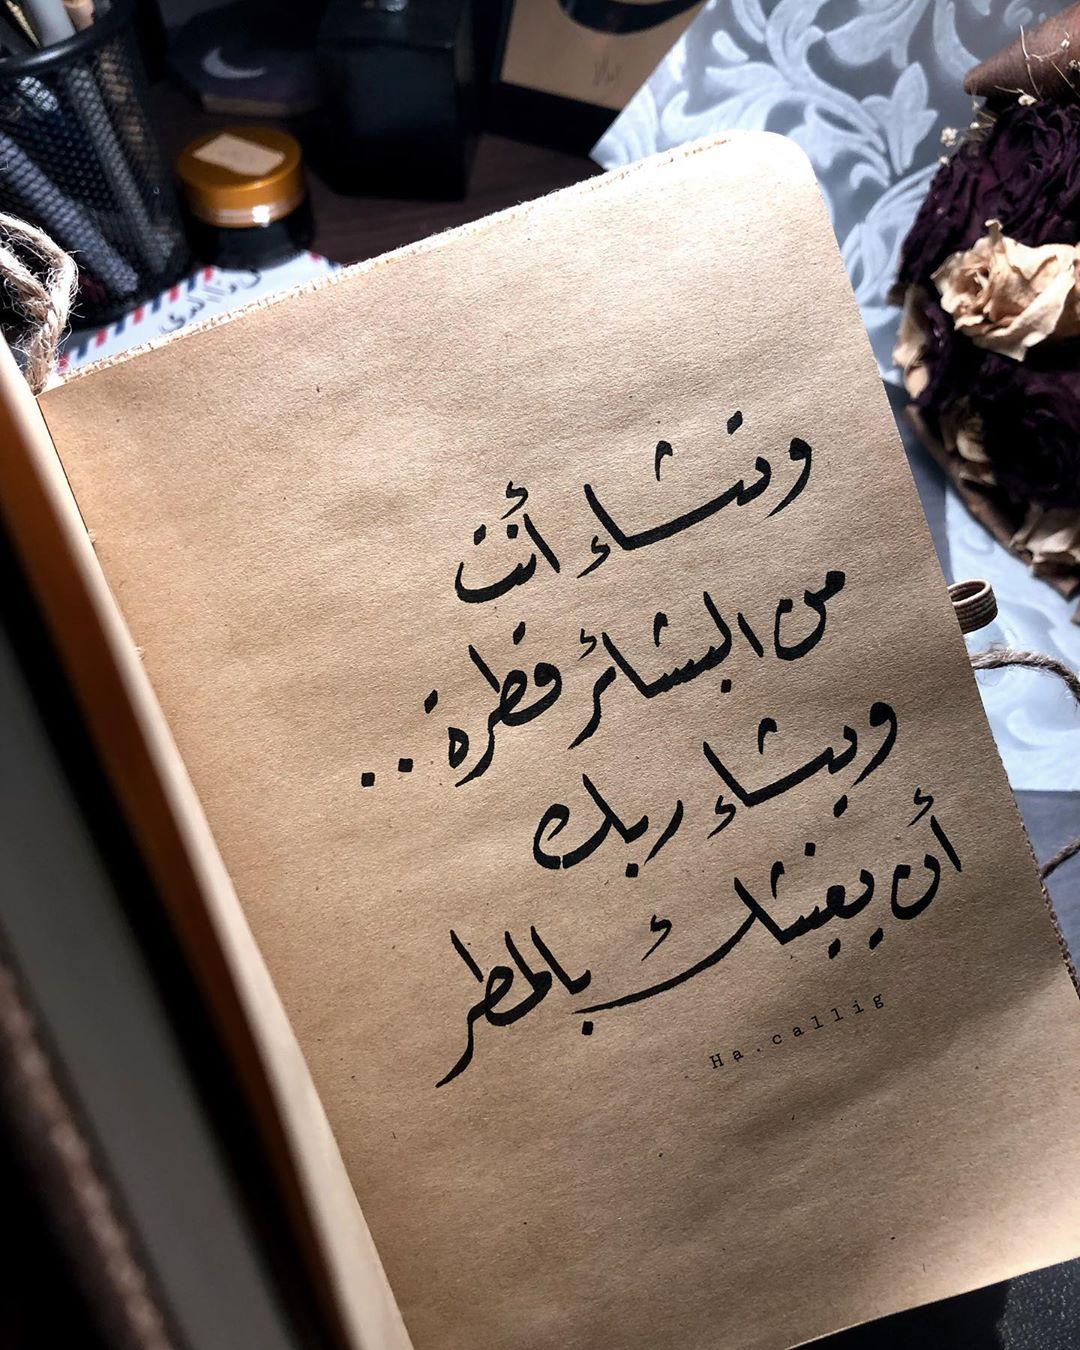 وتشاء أنت
من البشائر قطرة..
ويشاء ربك
أن يغيثك بالمطر
Ha.callig